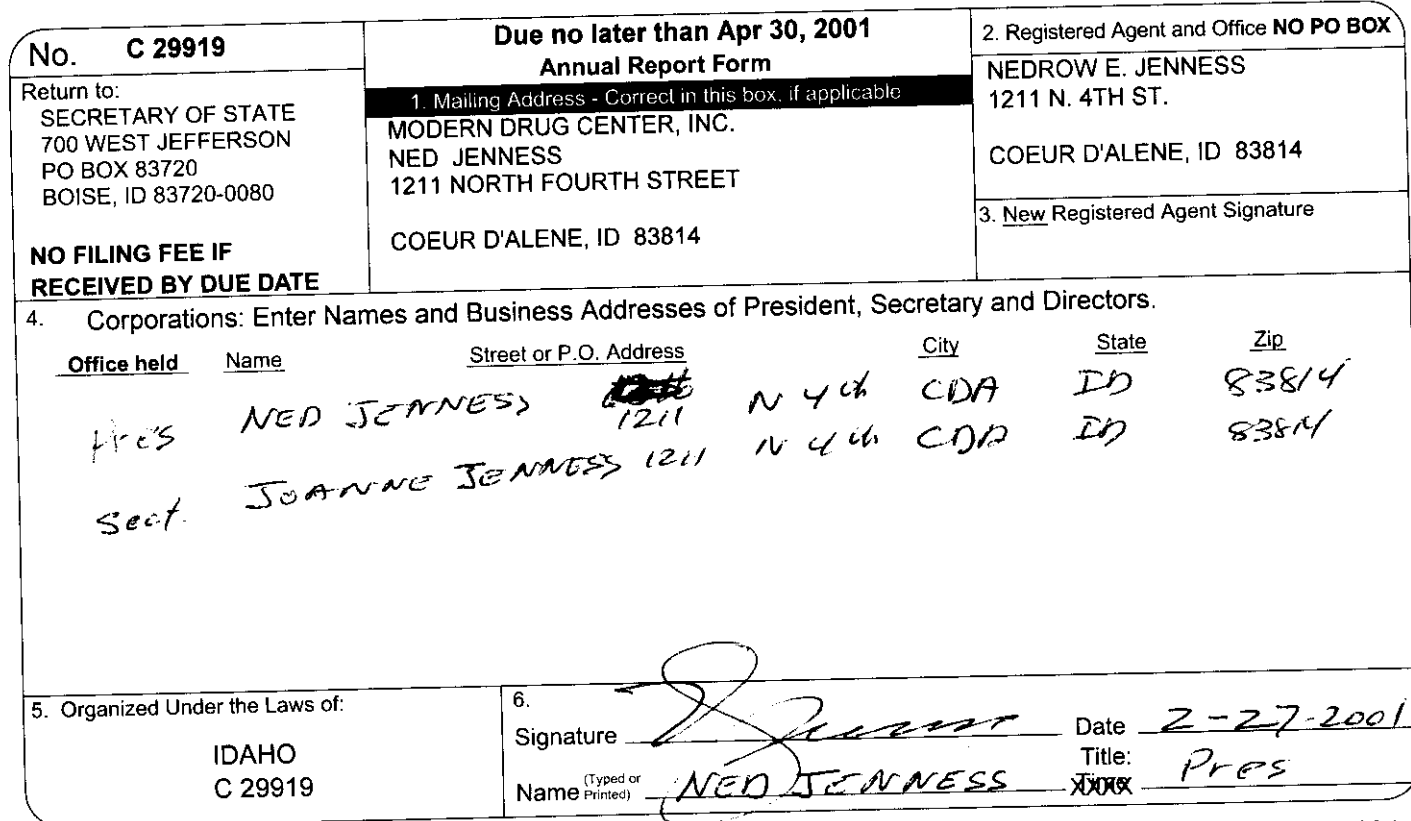 No. C 29919
Return to:
SECRETARY OF STATE
700 WEST JEFFERSON
PO BOX 83720
BOISE, ID 83720-0080
NO FILING FEE IF
RECEIVED BY DUE DATE
Due no later than Apr 30, 2001
Annual Report Form
1. Mailing Address - Correct in this box, if applicable
MODERN DRUG CENTER, INC.
NED JENNESS
1211 NORTH FOURTH STREET
COEUR D'ALENE, ID 83814
2. Registered Agent and Office NO PO BOX
NEDROW E. JENNESS
1211 N. 4TH ST.
COEUR D'ALENE, ID 83814
3. New Registered Agent Signature
4. Corporations: Enter Names and Business Addresses of President, Secretary and Directors.
Office held Name Street or P.O. Address City State Zip
Pres NED JENNESS 1211 N 4th CDA ID 83814
Sect. JOANNE JENNESS 1211 N 4th CDA ID 83814
5. Organized Under the Laws of:
IDAHO
C 29919
6.
Signature Date 2-27-2001
Name (Typed or Printed) NED JENNESS Title: Pres